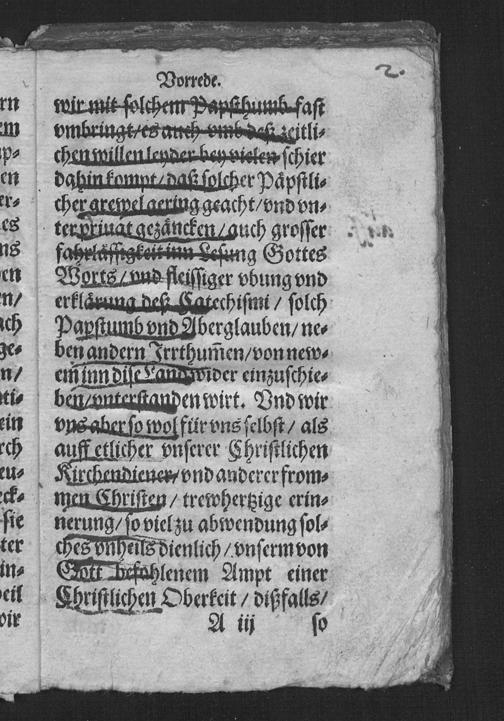 Vorrede.
2.
wir mit solchem Papsthumb fast
vmbringt/es auch vmb deß zeitli-
chen willen leyder bey vielen schier
dahin kompt/daß solcher Päpstli-
cher grewel gering geacht/vnd vn-
ter priuat gezäncken/auch grosser
fahrlässigkeit inn Lesung Gottes
Worts/vnd fleissiger vbung vnd
erklärung deß Catechismi/solch
Papstumb vnd Aberglauben/ne-
ben andern Irrthum̃en/von new-
em inn dise Land wider einzuschie-
ben/vnterstanden wirt. Vnd wir
vns aber so wol für vns selbst/als
auff etlicher vnserer Christlichen
Kirchendiener/vnd anderer from-
men Christen/trewhertzige erin-
nerung/so viel zu abwendung sol-
ches vnheils dienlich/vnserm von
Gott befohlenem Ampt einer
Christlichen Oberkeit/dißfalls/
A iij so